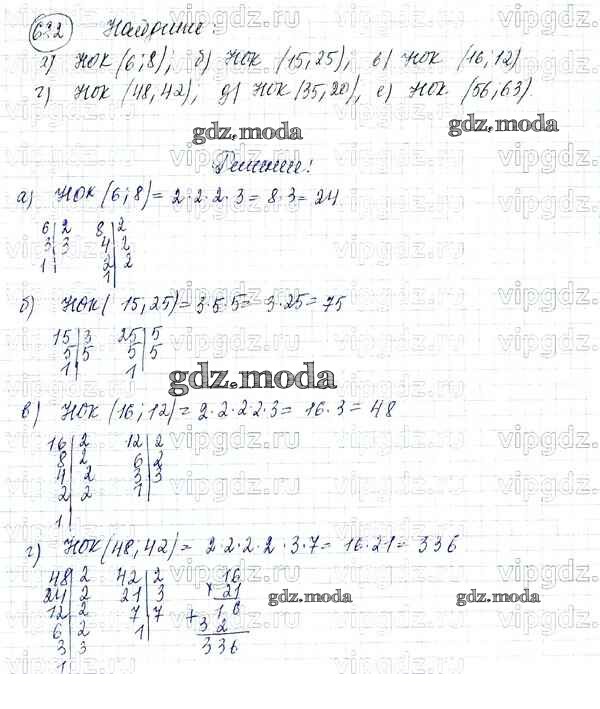 632 Найдите:
а) НОК (6;8); б) НОК (15,25); в) НОК (16,12)
г) НОК (48,42); д) НОК (35,20), е) НОК (56,63).
gdz.moda gdz.moda
Решение!
а) НОК (6;8) = 2·2·2·3 = 8·3 = 24
6|2 8|2
3|3 4|2
1| 2|2
1
б) НОК (15,25) = 3·5·5 = 3·25 = 75
15|3 25|5
5|5 5|5
1| 1
gdz.moda
в) НОК (16;12) = 2·2·2·2·3 = 16·3 = 48
16|2 12|2
8|2 6|2
4|2 3|3
2|2 1|
1|
г) НОК (48,42) = 2·2·2·2·3·7 = 16·21 = 336
48|2 42|2 16
24|2 21|3 × 21
12|2 7|7 + 16
6|2 1| 32
3|3 336
1|
gdz.moda gdz.moda
vipgdz.ru